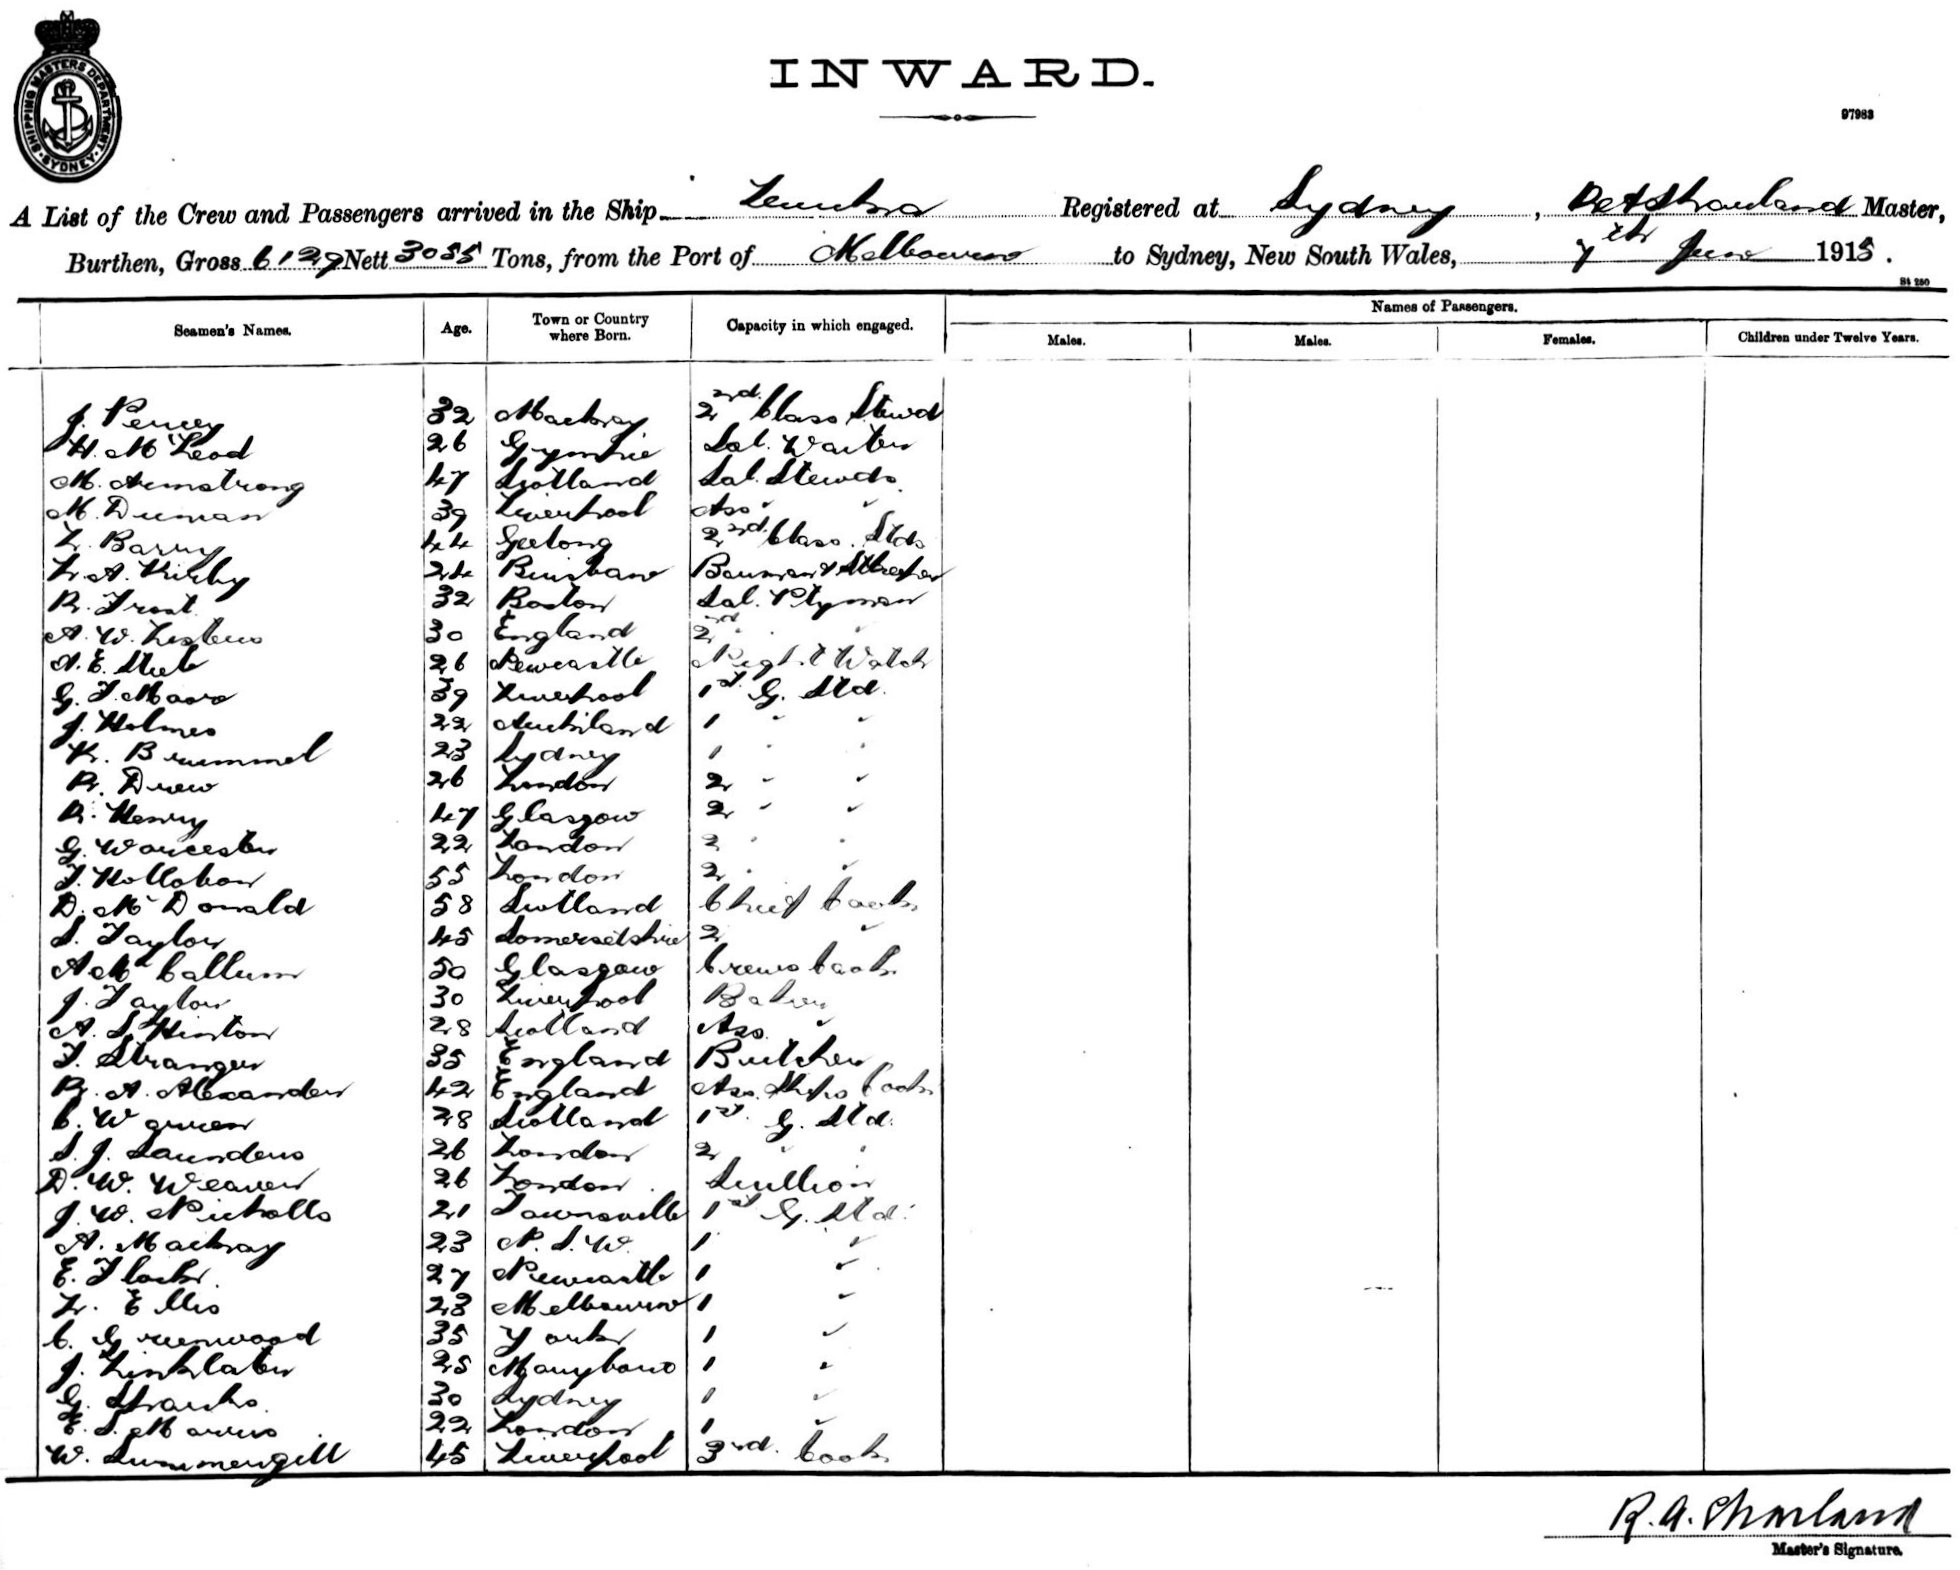 SHIPPING MASTERS DEPARTMENT. SYDNEY.
INWARD.
97983
A List of the Crew and Passengers arrived in the Ship Registered at Sydney, Master,
Burthen, Gross 6129 Nett 3055 Tons, from the Port of Melbourne to Sydney, New South Wales, 7th June 1915.
St 250
Seamen's Names. Age. Town or Country where Born. Capacity in which engaged. Names of Passengers.
Males. Males. Females. Children under Twelve Years.
J. Percey 32 Mackay 2nd Class Stewd
H. McLeod 26 Gympie Sal. Waiter
M. Armstrong 47 Scotland Sal. Stewds
M. Duman 39 Liverpool Ass " "
L. Barry 44 Geelong 2nd Class. Stds
L. A. Kirby 24 Brisbane
R. Frost 32 Boston Sal. Ptyman
A. W. 30 England 2nd " "
A. E. Steele 26 Newcastle Night Watch
G. F. Moore 39 Liverpool 1st G. Std.
J. Holmes 22 Auckland 1 " "
K. Brummel 23 Sydney 1 " "
R. Drew 26 London 2 " "
R. Henry 47 Glasgow 2 " "
G. Worcester 22 London 2 " "
F. Hollobow 55 London 2 " "
D. McDonald 58 Scotland Chief Cook
S. Taylor 45 Somersetshire 2 "
A McCallum 50 Glasgow Crews Cook
J. Taylor 30 Liverpool Baker
A. S. Hinton 28 Scotland Ass. "
F. Stranger 35 England Butcher
R. A. Alexander 42 England Ass. Ships Cook
C. Warren 28 Scotland 1st G. Std.
S. J. Saunders 26 London 2 " "
D. W. Weaver 26 London Scullion
J. W. Nicholls 21 Townsville 1st G. Std.
A. Mackay 23 N. S. W. 1 "
E. Flack. 27 Newcastle 1 "
L. Ellis 23 Melbourne 1 "
C. Greenwood 35 York 1 "
J. Linklater 25 Maryboro 1 "
G. 30 Sydney 1 "
E. S. Morris 22 London 1 "
W. Summergill 45 Liverpool 3rd. Cook
R. A.
Master's Signature.